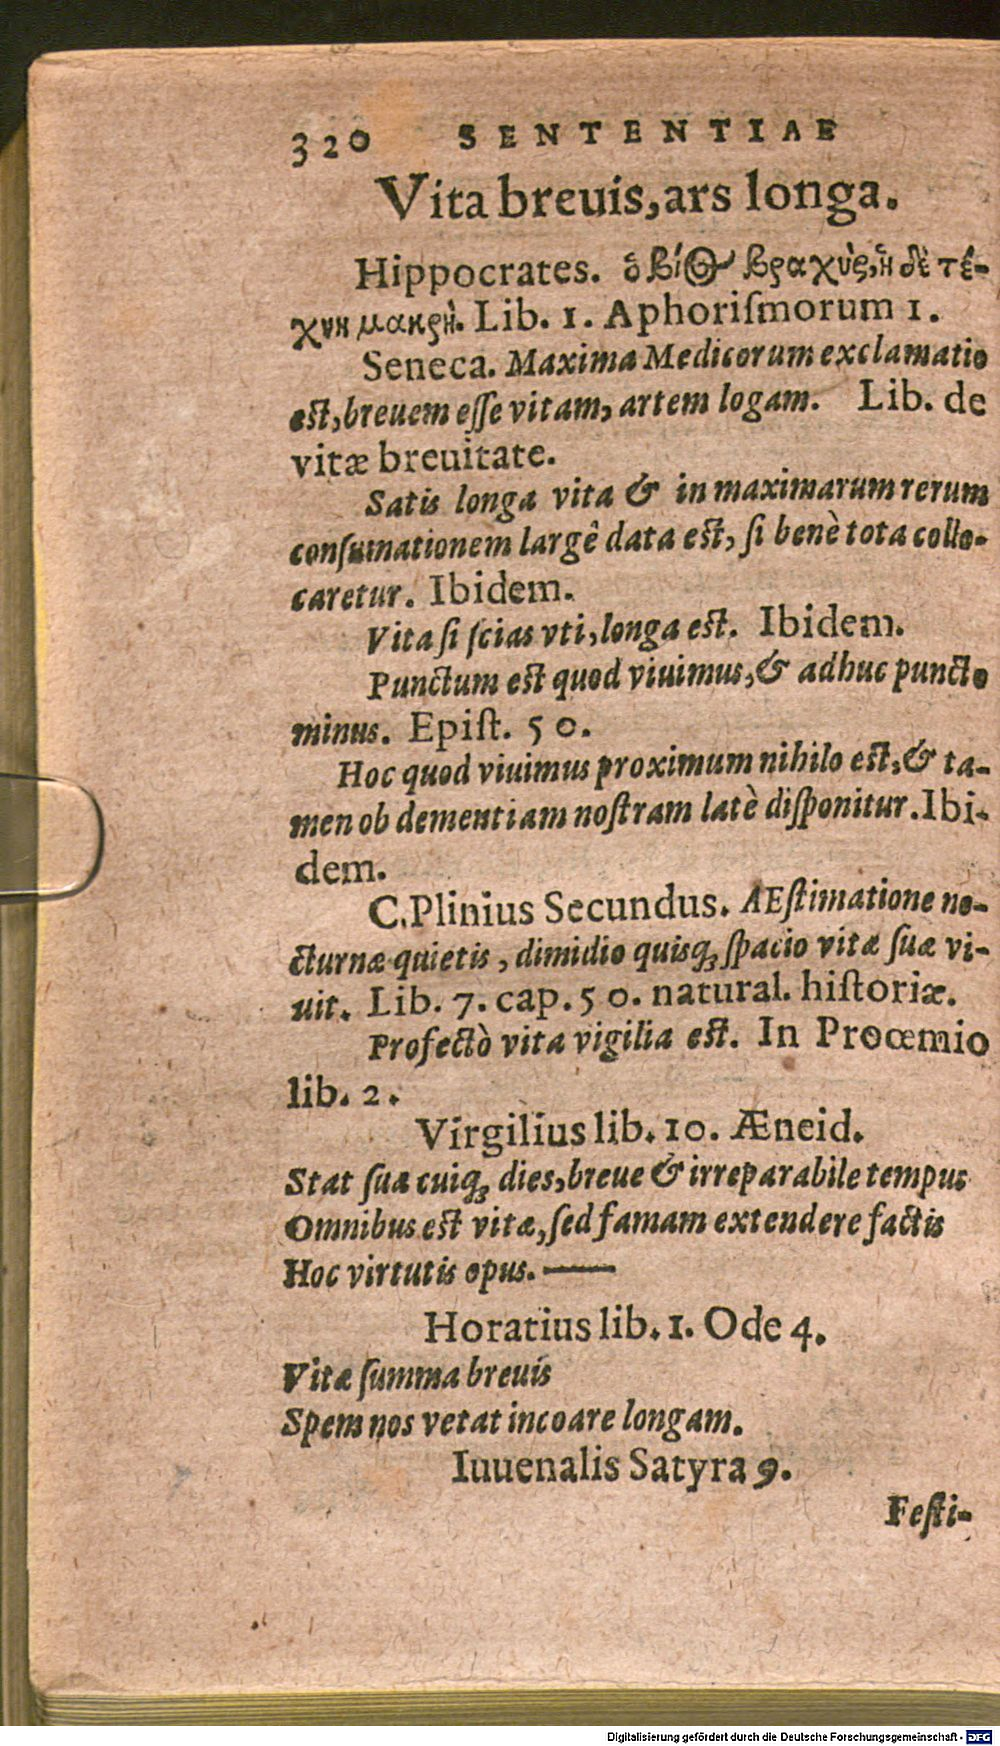 320 SENTENTIAE
Vita breuis, ars longa.
Hippocrates. ὁ βίος βραχὺς, ἡ δὲ τέ-
χνη μακρὴ. Lib. 1. Aphoriſmorum 1.
Seneca. Maxima Medicorum exclamatio
eſt, breuem eſſe vitam, artem logam. Lib. de
vitæ breuitate.
Satis longa vita & in maximarum rerum
conſumationem largê data eſt, ſi benè tota collo-
caretur. Ibidem.
Vita ſi ſcias vti, longa eſt. Ibidem.
Punctum eſt quod viuimus, & adhuc puncto
minus. Epiſt. 50.
Hoc quod viuimus proximum nihilo eſt, & ta-
men ob dementiam noſtram latè diſponitur. Ibi-
dem.
C. Plinius Secundus. AEſtimatione no-
cturnæ quietis, dimidio quisq; ſpacio vitæ ſuæ vi-
uit. Lib. 7. cap. 50. natural. hiſtoriæ.
Profectò vita vigilia eſt. In Proœmio
lib. 2.
Virgilius lib. 10. Æneid.
Stat ſua cuiq; dies, breue & irreparabile tempus
Omnibus eſt vitæ, ſed famam extendere factis
Hoc virtutis opus. —
Horatius lib. 1. Ode 4.
Vitæ ſumma breuis
Spem nos vetat incoare longam.
Iuuenalis Satyra 9.
Feſti-
Digitalisierung gefördert durch die Deutsche Forschungsgemeinschaft - DFG